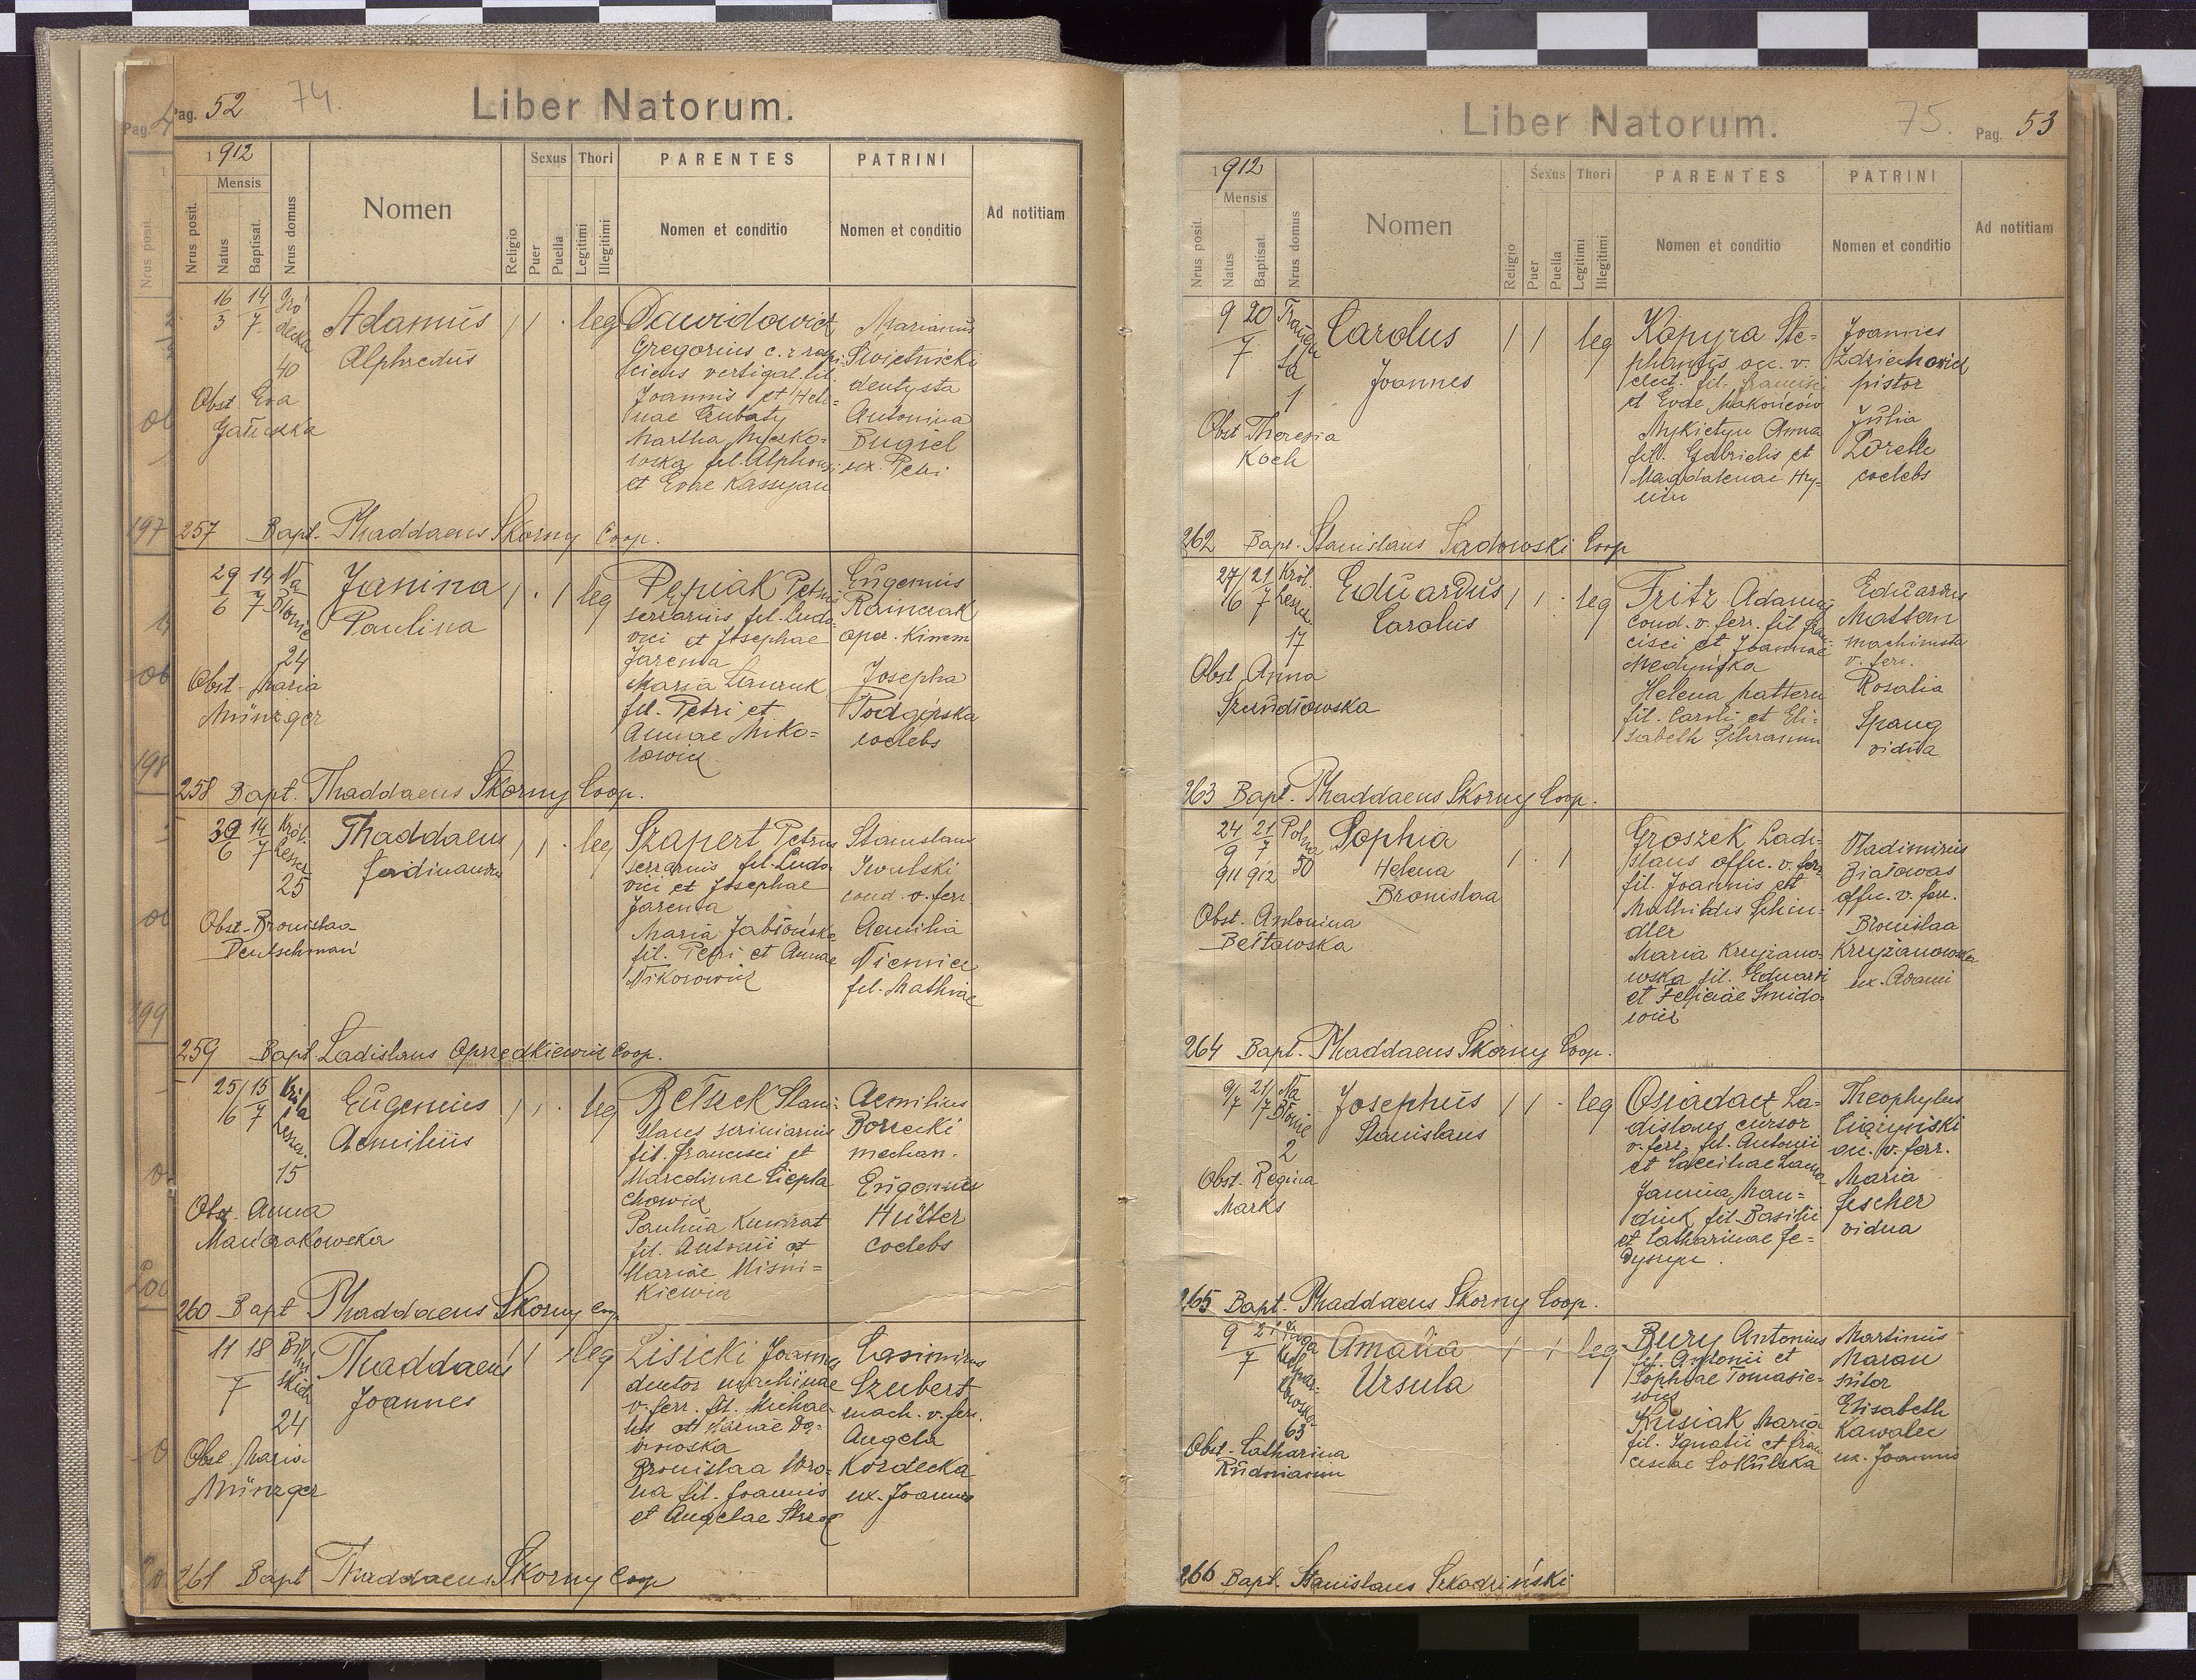 Pag. 52 74.
Liber Natorum.
1912
Mensis
Nrus posit.
Natus
Baptisat.
Nrus domus
Nomen
Religio
Sexus
Puer
Puella
Thori
Legitimi
Illegitimi
PARENTES
Nomen et conditio
PATRINI
Nomen et conditio
Ad notitiam
16/3 14/7 Gródecka 40
Adamus
Alphredus
leg
Dawidowicz
Gregorius
vertigal. fil.
Joannis et Hele=
nae
Martha
fil. Alphonsi
et Evae Kassyan
Marianus
Świetnicki
dentysta
Antonina
Bugiel
ux. Petri
Obst. Eva
Gańczka
257 Bapt. Thaddaeus Skorny Coop.
29/6 14/7 Na Błonie 24
Janina
Paulina
leg
Pępiak Petrus
serrarius fil. Ludo-
vici et Josephae
Jarema
Maria Lauruk
fil. Petri et
Annae Miko=
łowicz
Eugenius
Rainczak
oper. Kinem
Josepha
Podgórska
coelebs
Obst. Maria
Münzger
258 Bapt. Thaddaeus Skorny Coop.
30/6 14/7 Król. Leszcz. 25
Thaddaeus
Ferdinandus
leg
Szapert Petrus
serrarius fil. Ludo-
vici et Josephae
Jarema
Maria Jabłońska
fil. Petri et Annae
Nikorowicz
Stanislaus
Iwulski
cond. v. ferr.
Aemilia
Niemiec
fil. Mathiae
Obst. Bronislaa
Deutschman
259 Bapt. Ladislaus Oprzędkiewicz Coop.
25/6 15/7 Król. Leszcz. 15
Eugenius
Aemilius
leg
Retszek Stani-
slaus scriniarius
fil. Francisci et
Marcelinae Ciepła
chowicz
Paulina Kunrat
fil. Antonii et
Mariae Misni=
kiewicz
Aemilius
Borzecki
mechan.
Eugenius
Hütter
coelebs
Obst. Anna
Mańczakowska
260 Bapt. Thaddaeus Skorny Coop.
11/7 18 24
Thaddaeus
Joannes
leg
Lisicki Joannes
ductor machinae
v. ferr. fil. Michae-
lis et Mariae Dą-
browska
Bronislaa Wro-
na fil. Joannis
et Angelae
Casimirus
Szubert
mach. v. ferr.
Angela
Kozdecka
ux. Joannis
Obst. Maria
Münzger
261 Bapt. Thaddaeus Skorny Coop
Liber Natorum.
75. Pag. 53
1912
Mensis
Nrus posit.
Natus
Baptisat.
Nrus domus
Nomen
Religio
Sexus
Puer
Puella
Thori
Legitimi
Illegitimi
PARENTES
Nomen et conditio
PATRINI
Nomen et conditio
Ad notitiam
9/7 20 1
Carolus
Joannes
leg
Kopyra Ste=
phanus oec. v.
elect. fil. Francisci
et Evae Makońców
Mykietyn Anna
fil. Gabrielis et
Magdalenae Hy-
Joannes
Zdziechowicz
pistor
Julia
Lorette
coelebs
Obst. Theresia
Koch
262 Bapt. Stanislaus Sadowski Coop
27/6 21/7 Król. Leszcz. 17
Eduardus
Carolus
leg
Fritz Adamus
cond. v. ferr. fil. Fran-
cisci et Joannae
Medyńska
Helena Mattern
fil. Caroli et Eli=
sabeth
Eduardus
Mattern
machinista
v. ferr.
Rosalia
Spaug
vidua
Obst. Anna
Szundrowska
263 Bapt. Thaddaeus Skorny Coop.
24/9 911 21/7 912 Polna 50
Sophia
Helena
Bronislaa
Groszek Ladi-
slaus offic. v. ferr.
fil. Joannis et
Mathildis Schin-
dler
Maria Krzyżano-
wska fil. Eduardi
et Feliciae Smido
wicz
Vladimirus
Białowas
offic. v. ferr.
Bronislaa
Krzyżanowska
ux. Adami
Obst. Antonina
Bełtawska
264 Bapt. Thaddaeus Skorny Coop.
9/7 21/7 Na Błonie 2
Josephus
Stanislaus
leg
Osiadacz La-
dislaus cursor
v. ferr. fil. Antonii
et Caeciliae
Janina Man=
diuk fil. Basilii
et Catharinae Fe=
Theophylus
oec. v. ferr.
Maria
Fischer
vidua
Obst. Regina
Marks
265 Bapt. Thaddaeus Skorny Coop.
9/7 21 63
Amalia
Ursula
leg
Bury Antonius
fil. Antonii et
Sophiae Tomasie-
wicz
Kusiak Maria
fil. Ignatii et Fran-
ciscae Sokulska
Martinus
Maran
sutor
Elisabeth
Kawalec
ux. Joannis
Obst. Catharina
Rudmann
266 Bapt. Stanislaus Szkodziński